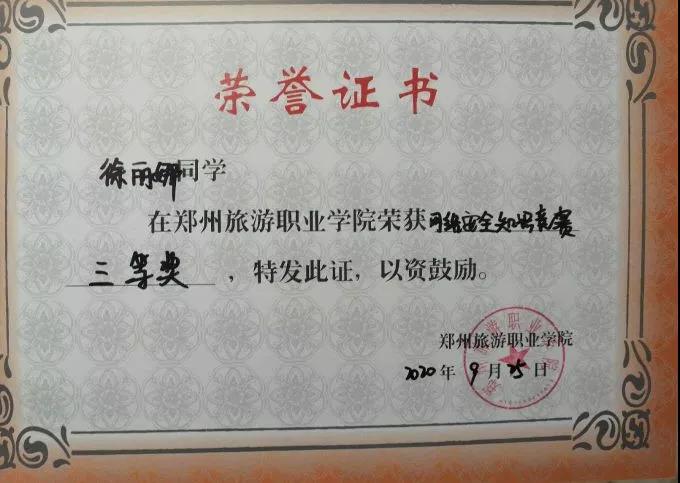 荣誉证书
徐丽娜同学
在郑州旅游职业学院荣获网络安全知识竞赛
三等奖,特发此证,以资鼓励。
郑州旅游职业学院
2020年9月25日
郑州旅游职业学院